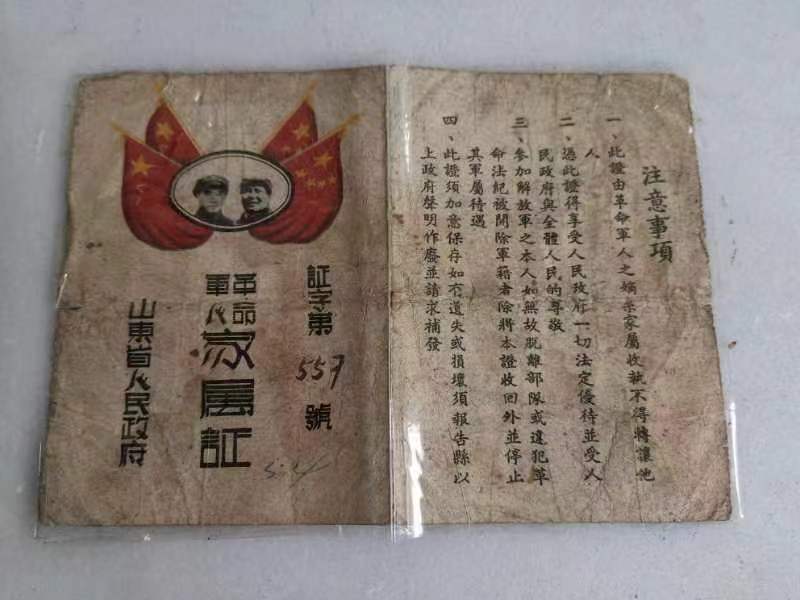 注意事項
一、此證由革命軍人之嫡系家屬收執不得轉讓他
人
二、憑此證得享受人民政府一切法定優待並受人
民政府與全體人民的尊敬
三、參加解放軍之本人如無故脫離部隊或違犯革
命法紀被開除軍籍者除將本證收回外並停止
其軍屬待遇
四、此證須加意保存如有遺失或損壞須報告縣以
上政府聲明作廢並請求補發
証字第557號
革命軍人家属証
山東省人民政府